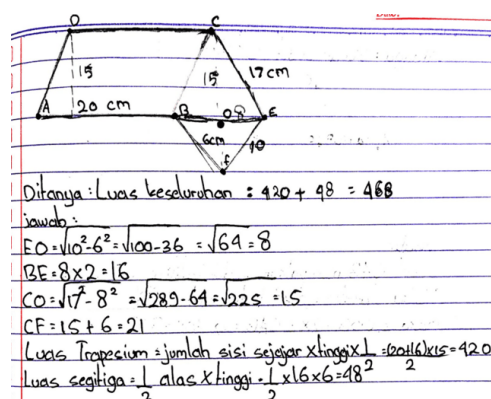 D C
15 15 17 cm
A 20 cm B O 8 E
6cm 10
F
Ditanya : Luas keseluruhan : 420 + 48 = 468
jawab :
EO = √10²-6² = √100-36 = √64 = 8
BE = 8 x 2 = 16
CO = √17² - 8² = √289-64 = √225 = 15
CF = 15 + 6 = 21
Luas Trapesium = jumlah sisi sejajar x tinggi x 1/2 = (20+16) x 15 / 2 = 420
Luas segitiga = 1/2 alas x tinggi = 1/2 x 16 x 6 = 48²